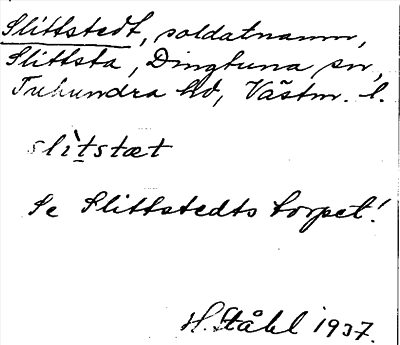 Slittstedt, soldatnamn,
Slittsta, Dingtuna sn,
Tuhundra hd, Västm. l.
slìtstæt
Se Slittstedts torpet!
H. Ståhl 1937.